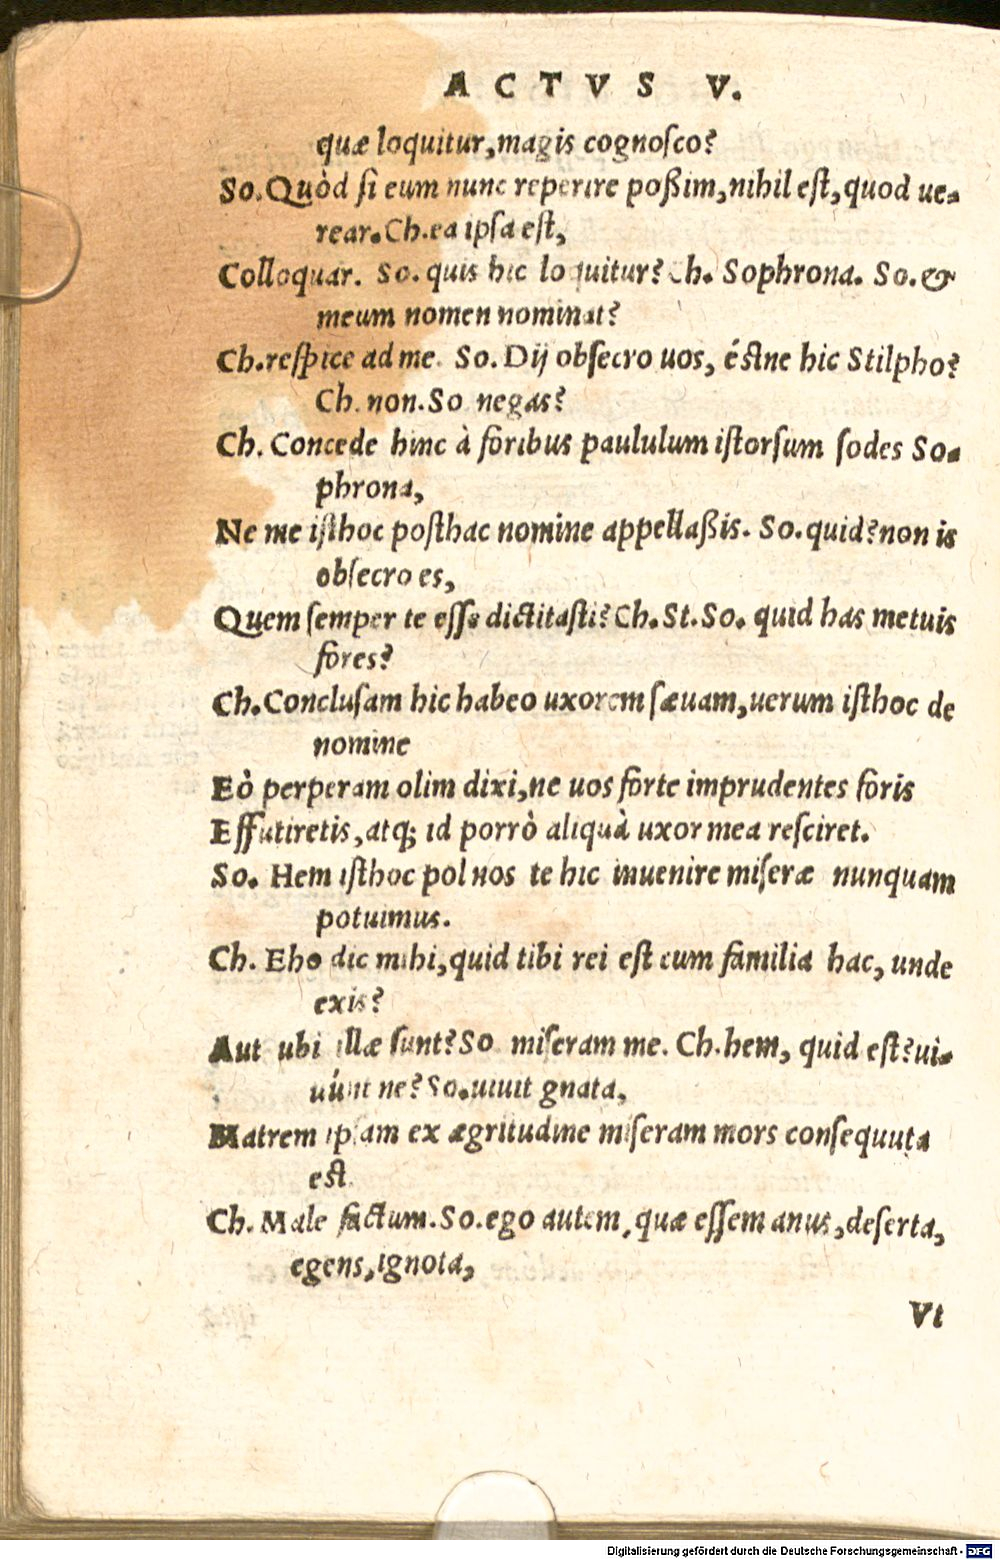 ACTVS V.
quæ loquitur,magis cognoſco?
So.Quòd ſi eum nunc reperire poßim,nihil eſt,quod ue-
rear.Ch.ea ipſa eſt,
Colloquar. So. quis hic loquitur? Ch. Sophrona. So. &
meum nomen nominat?
Ch.reſpice ad me. So. Dij obſecro uos, éſtne hic Stilpho?
Ch. non.So negas?
Ch. Concede hinc à foribus paululum iſtorſum ſodes So-
phrona,
Ne me iſthoc poſthac nomine appellaßis. So. quid?non is
obſecro es,
Quem ſemper te eſſe dictitaſti? Ch. St. So. quid has metuis
fores?
Ch.Concluſam hic habeo uxorem ſæuam,uerum iſthoc de
nomine
Eò perperam olim dixi,ne uos forte imprudentes foris
Effutiretis,atq; id porrò aliquà uxor mea reſciret.
So. Hem iſthoc pol nos te hic inuenire miſeræ nunquam
potuimus.
Ch. Eho dic mihi,quid tibi rei eſt cum familia hac, unde
exis?
Aut ubi illæ ſunt? So miſeram me. Ch.hem, quid eſt?ui-
uúnt ne? So.uiuit gnata,
Matrem ipſam ex ægritudine miſeram mors conſequuta
eſt.
Ch. Male factum.So.ego autem, quæ eſſem anus,deſerta,
egens,ignota,
Vt
Digitalisierung gefördert durch die Deutsche Forschungsgemeinschaft - DFG